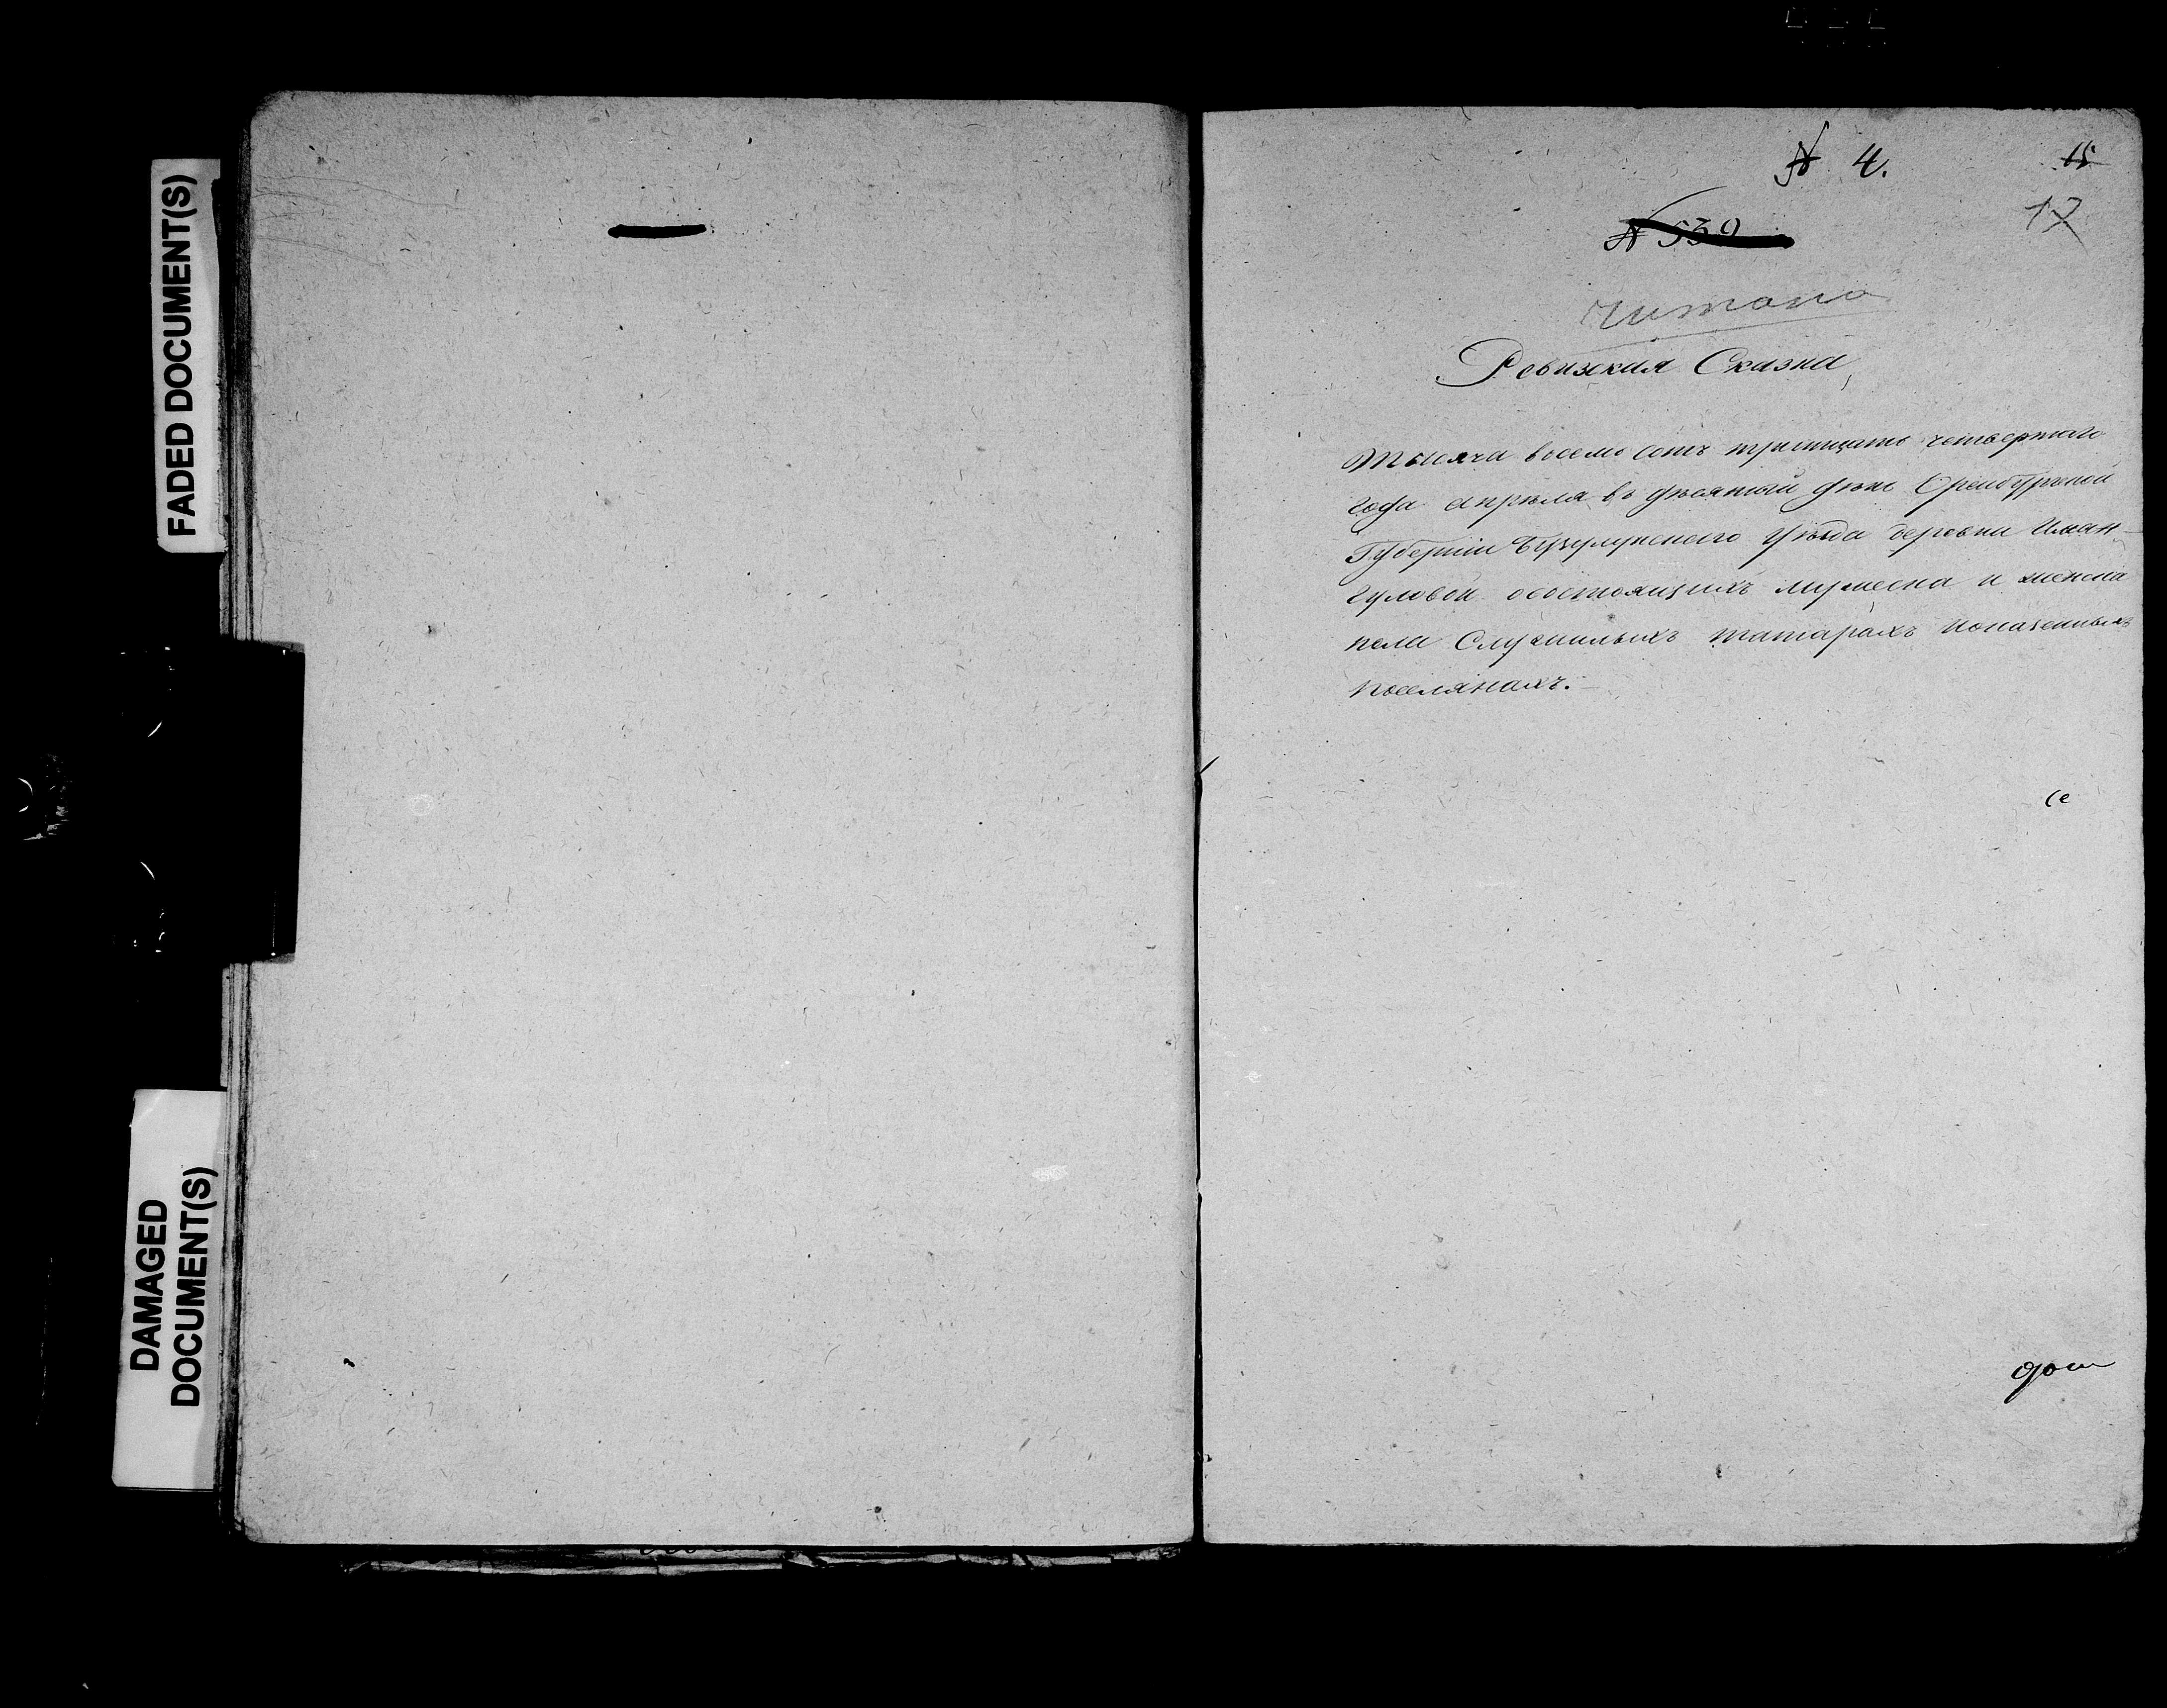 FADED DOCUMENT(S)
DAMAGED
DOCUMENT(S)
№ 4.
15
17
№ 539
читано
Ревизская Сказка,
Тысяча восемь сотъ тритцать четвертаго
года апреля въ десятый день Оренбургской
Губернiи Бузулукскаго Уезда деревни Иман-
гуловой осостоящихъ мужеска и женска
пола Служилыхъ татарахъ
поселянахъ.
се
дош